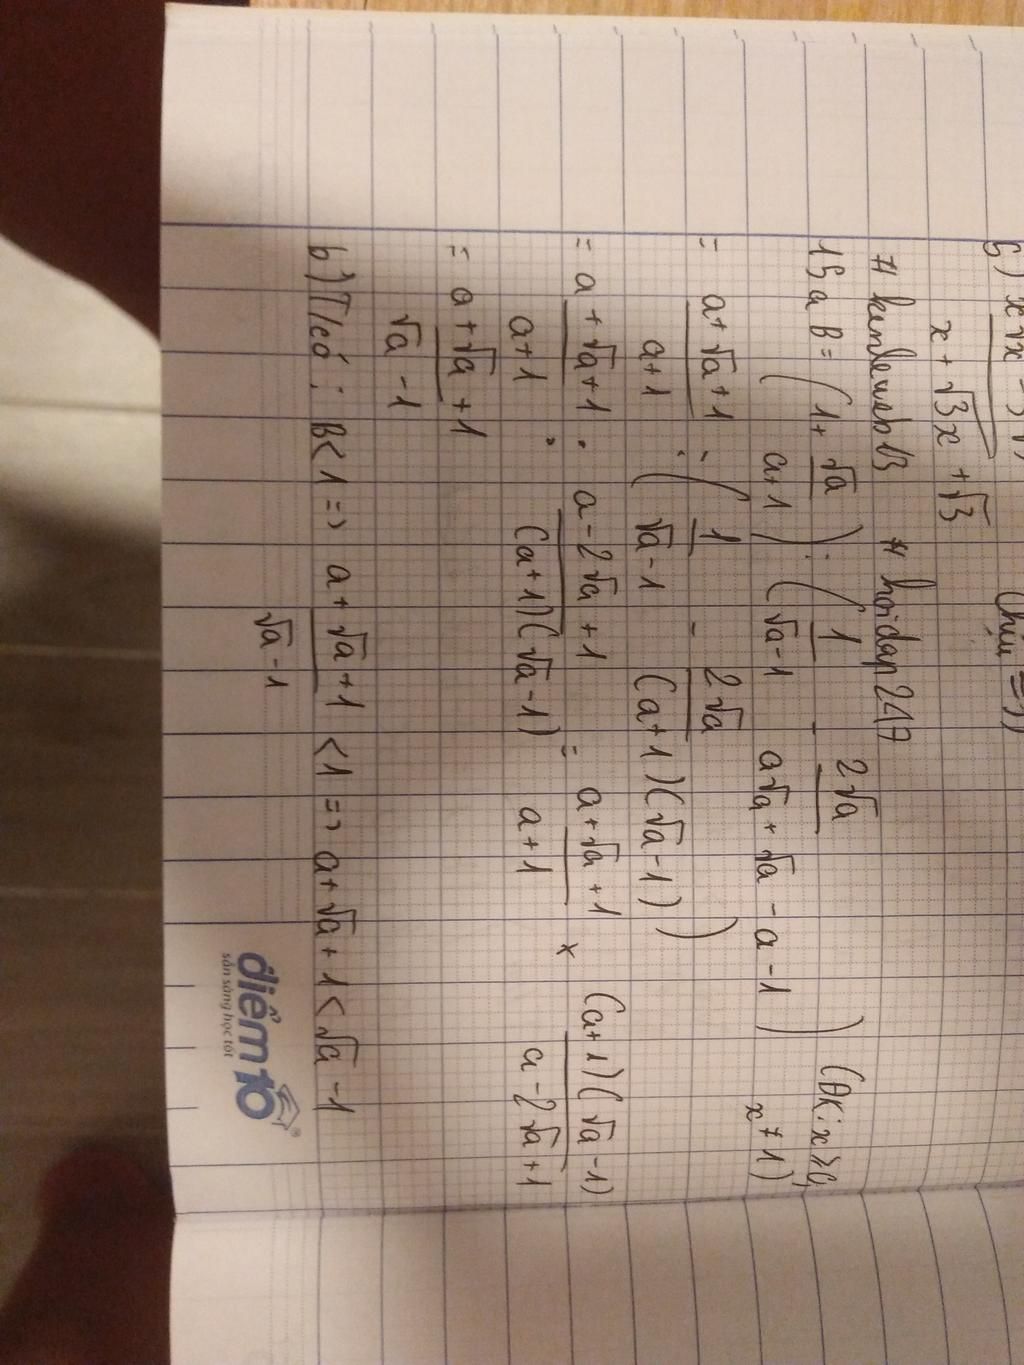 6) x√x - 3√
x + √3x + √3
(hiju =))
# kendeusb13 # hoidap247
15 a B = (1 + √a / a+1) : (1 / √a - 1 - 2√a / a√a + √a - a - 1) (ĐK: x ≥ 0, x ≠ 1)
= a + √a + 1 / a + 1 : (1 / √a - 1 - 2√a / (a+1)(√a - 1))
= a + √a + 1 / a + 1 : a - 2√a + 1 / (a+1)(√a - 1) = a + √a + 1 / a + 1 × (a+1)(√a - 1) / a - 2√a + 1
= a + √a + 1 / √a - 1
b) T/có : B < 1 => a + √a + 1 / √a - 1 < 1 => a + √a + 1 < √a - 1
điểm 10
sẵn sàng học tốt